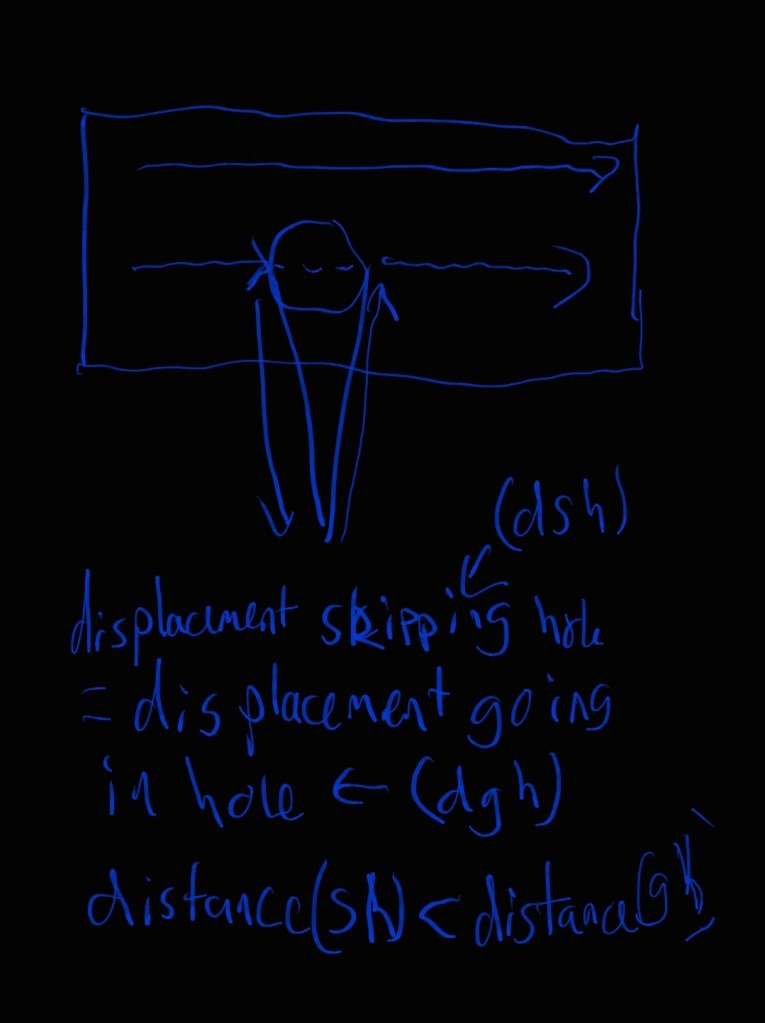 (dsh)
displacement skipping hole
= displacement going
in hole ← (dgh)
distance(sh) < distance(gh)